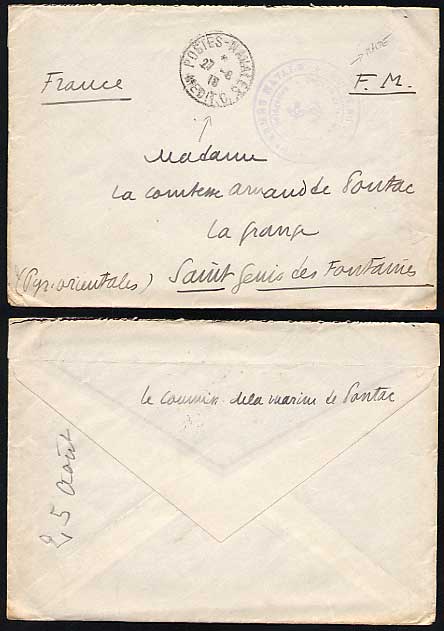 France
POSTES-NAVALES
27 * -8
18
F. M.
Madame
La comtesse Armand de Pontac
La grange
(Pyr. orientales) Saint Genis des Fontaines
Le commiss. de la marine de Pontac
25 Août